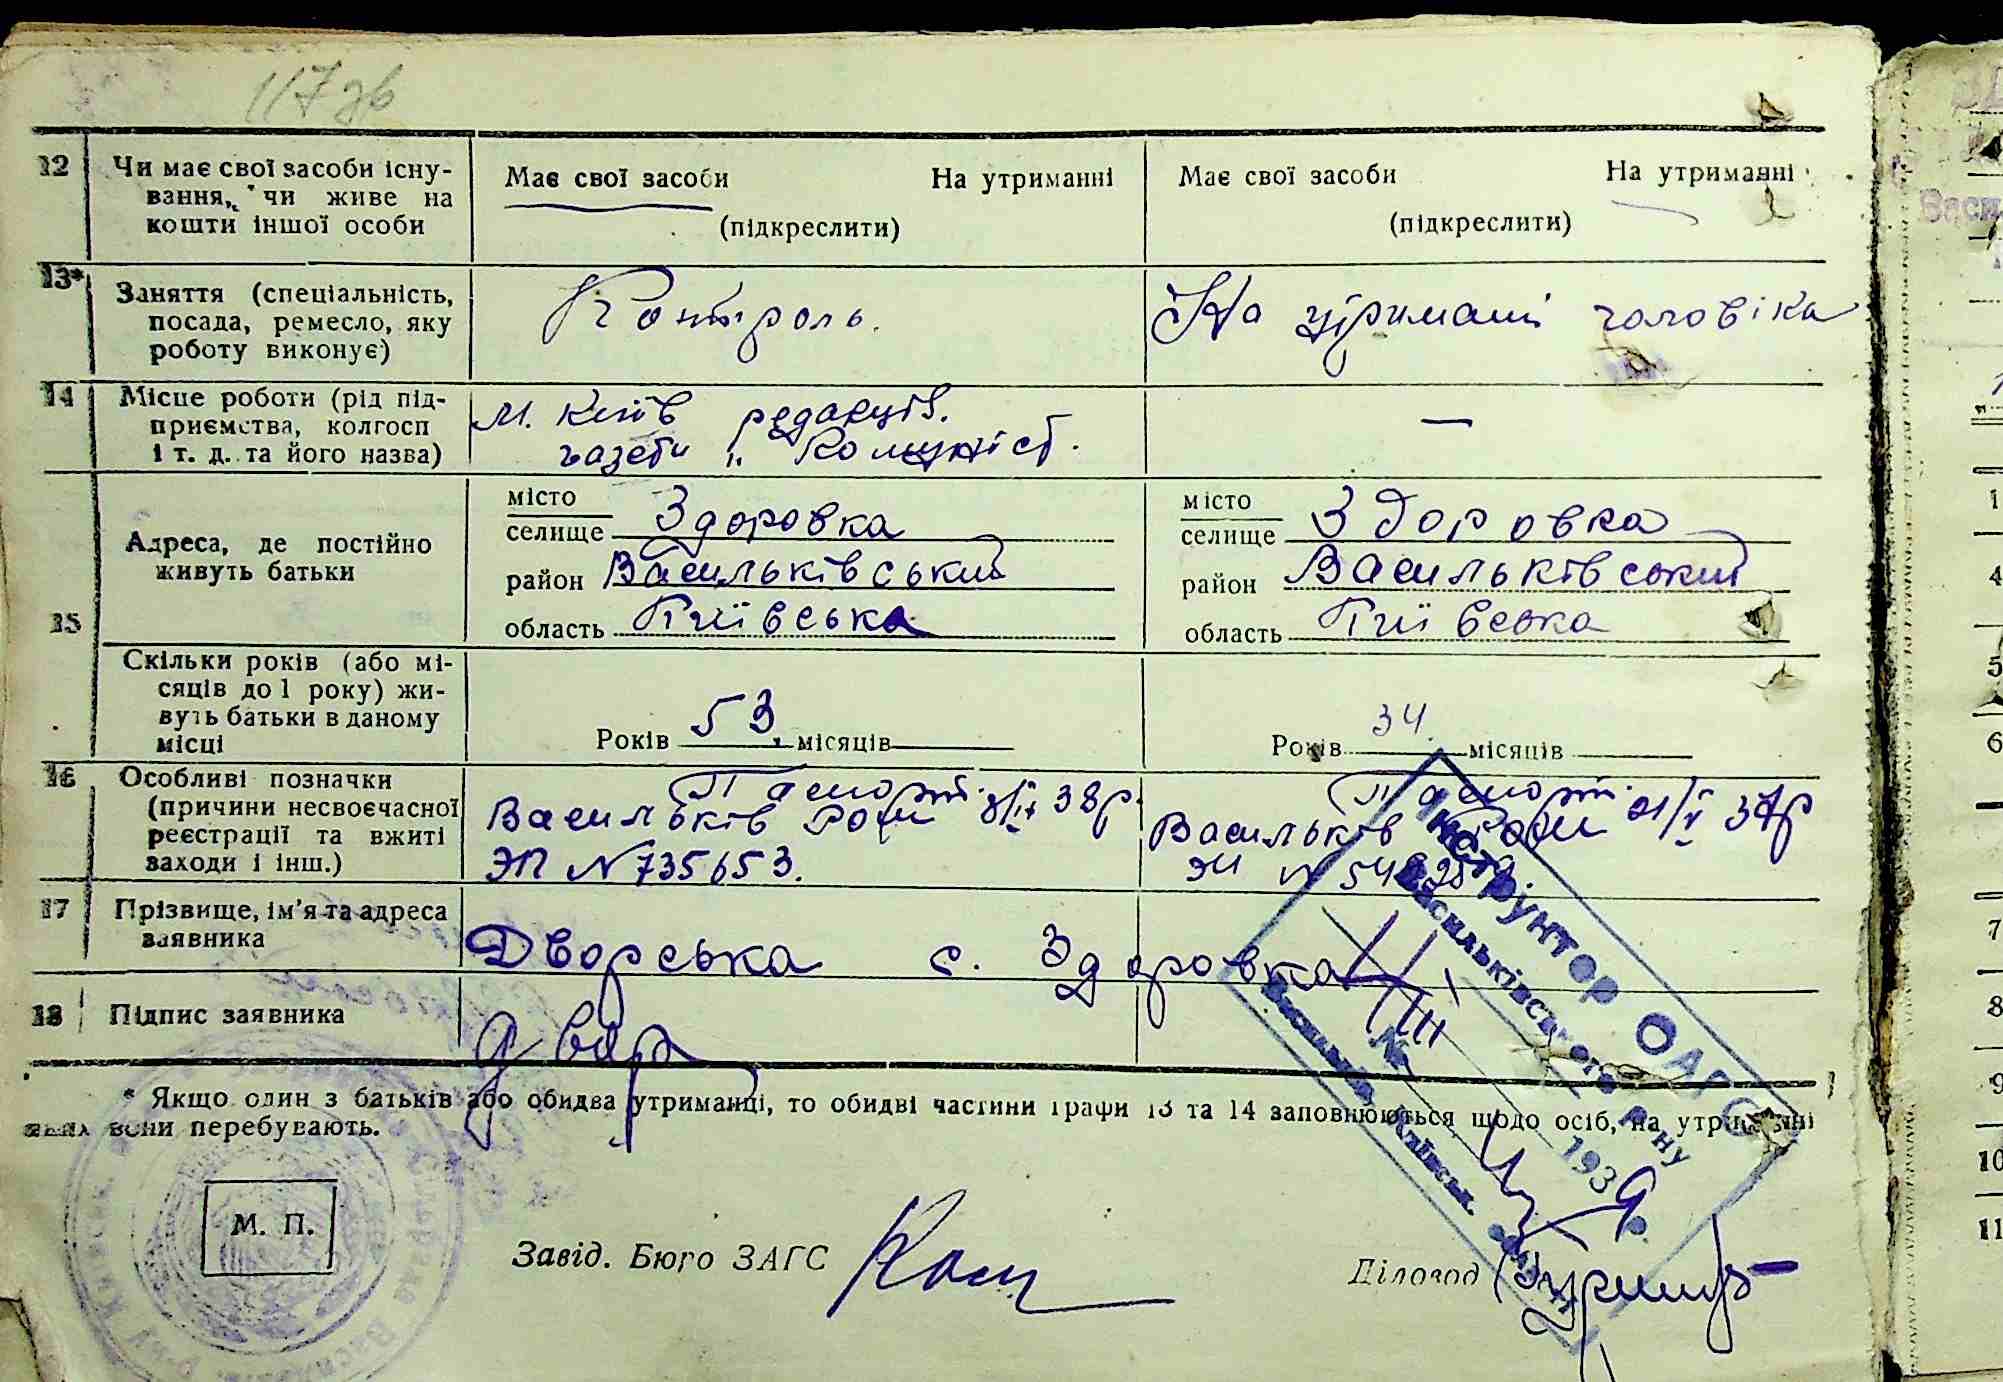 117 зв
12 Чи має свої засоби існу-
вання, чи живе на
кошти іншої особи
Має свої засоби На утриманні
(підкреслити)
Має свої засоби На утриманні
(підкреслити)
13* Заняття (спеціальність,
посада, ремесло, яку
роботу виконує)
Контроль.
На утримані чоловіка
14 Місце роботи (рід під-
приємства, колгосп
і т. д. та його назва)
м. Київ редакція
газети „Комуніст.
—
15 Адреса, де постійно
живуть батьки
місто
селище Здоровка
район Васильківський
область Київська
місто
селище Здоровка
район Васильківський
область Київська
Скільки років (або мі-
сяців до 1 року) жи-
вуть батьки в даному
місці
Років 53. місяців
Років 34. місяців
16 Особливі позначки
(причини несвоєчасної
реєстрації та вжиті
заходи і інш.)
Паспорт
Васильків 38р.
ЭП N 735653.
Паспорт
Васильків 21/V 37р
17 Прізвище, ім'я та адреса
заявника
Дворська с. Здоровка
18 Підпис заявника
Двор
* Якщо один з батьків або обидва утриманці, то обидві частини графи 13 та 14 заповнюються щодо осіб, на утриманні
яких вони перебувають.
М. П.
Завід. Бюро ЗАГС
Діловод
Інструктор ОАГС
Васильківського р-ну
№
1939 р.
Васильків, Київськ. області